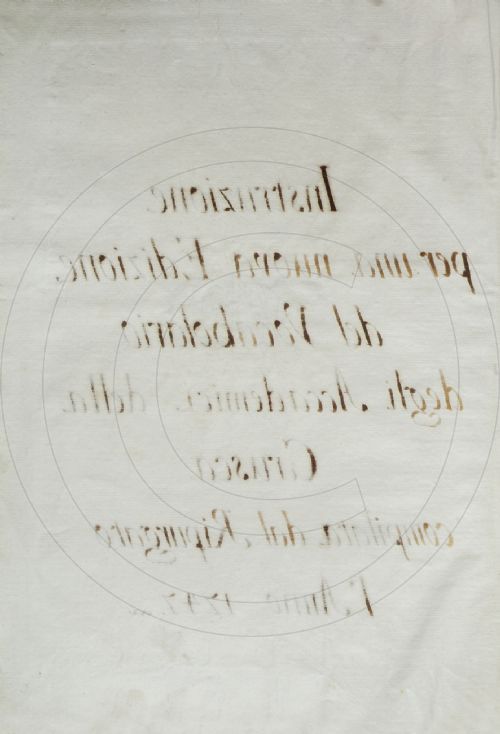 Instruzione
per una nuova Edizione
del Vocabolario
degli Accademici della
Crusca
compilata dal Ripurgato
l'Anno